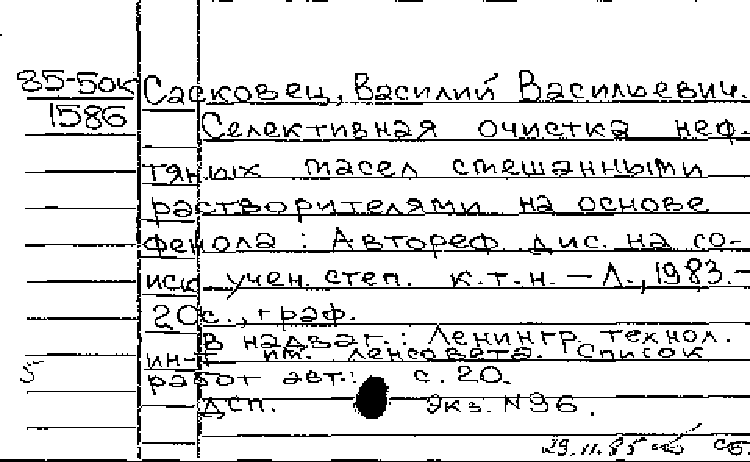 85-5ок
1586
Сасковец, Василий Васильевич.
Селективная очистка неф-
тяных масел смешанными
растворителями на основе
фенола : Автореф. дис. на со-
иск. учен. степ. к.т.н. – Л., 1983. –
20с., граф.
В надзаг.: Ленингр. технол.
ин-т им. Ленсовета. Список
работ авт.: с. 20.
ДСП. Экз. N96.
5
29.11.85 сб.